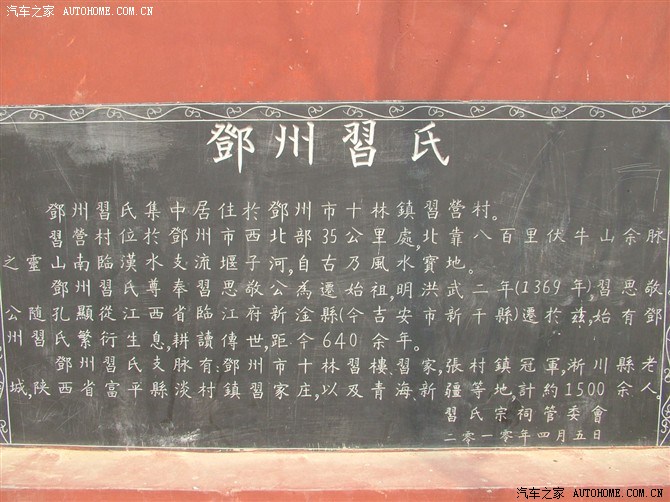 汽车之家 AUTOHOME.COM.CN
鄧州習氏
鄧州習氏集中居住於鄧州市十林鎮習營村。
習營村位於鄧州市西北部35公里處,北靠八百里伏牛山余脉
之靈山南臨漢水支流堰子河,自古乃風水寶地。
鄧州習氏尊奉習思敬公為遷始祖,明洪武二年(1369年),習思敬
公隨孔顯從江西省臨江府新淦縣(今吉安市新干縣)遷於茲,始有鄧
州習氏繁衍生息,耕讀傳世,距今640余年。
鄧州習氏支脉有:鄧州市十林習樓習家,張村鎮冠軍,淅川縣老
城,陝西省富平縣淡村鎮習家庄,以及青海、新疆等地,計約1500余人。
習氏宗祠管委會
二零一零年四月五日
汽车之家 AUTOHOME.COM.CN